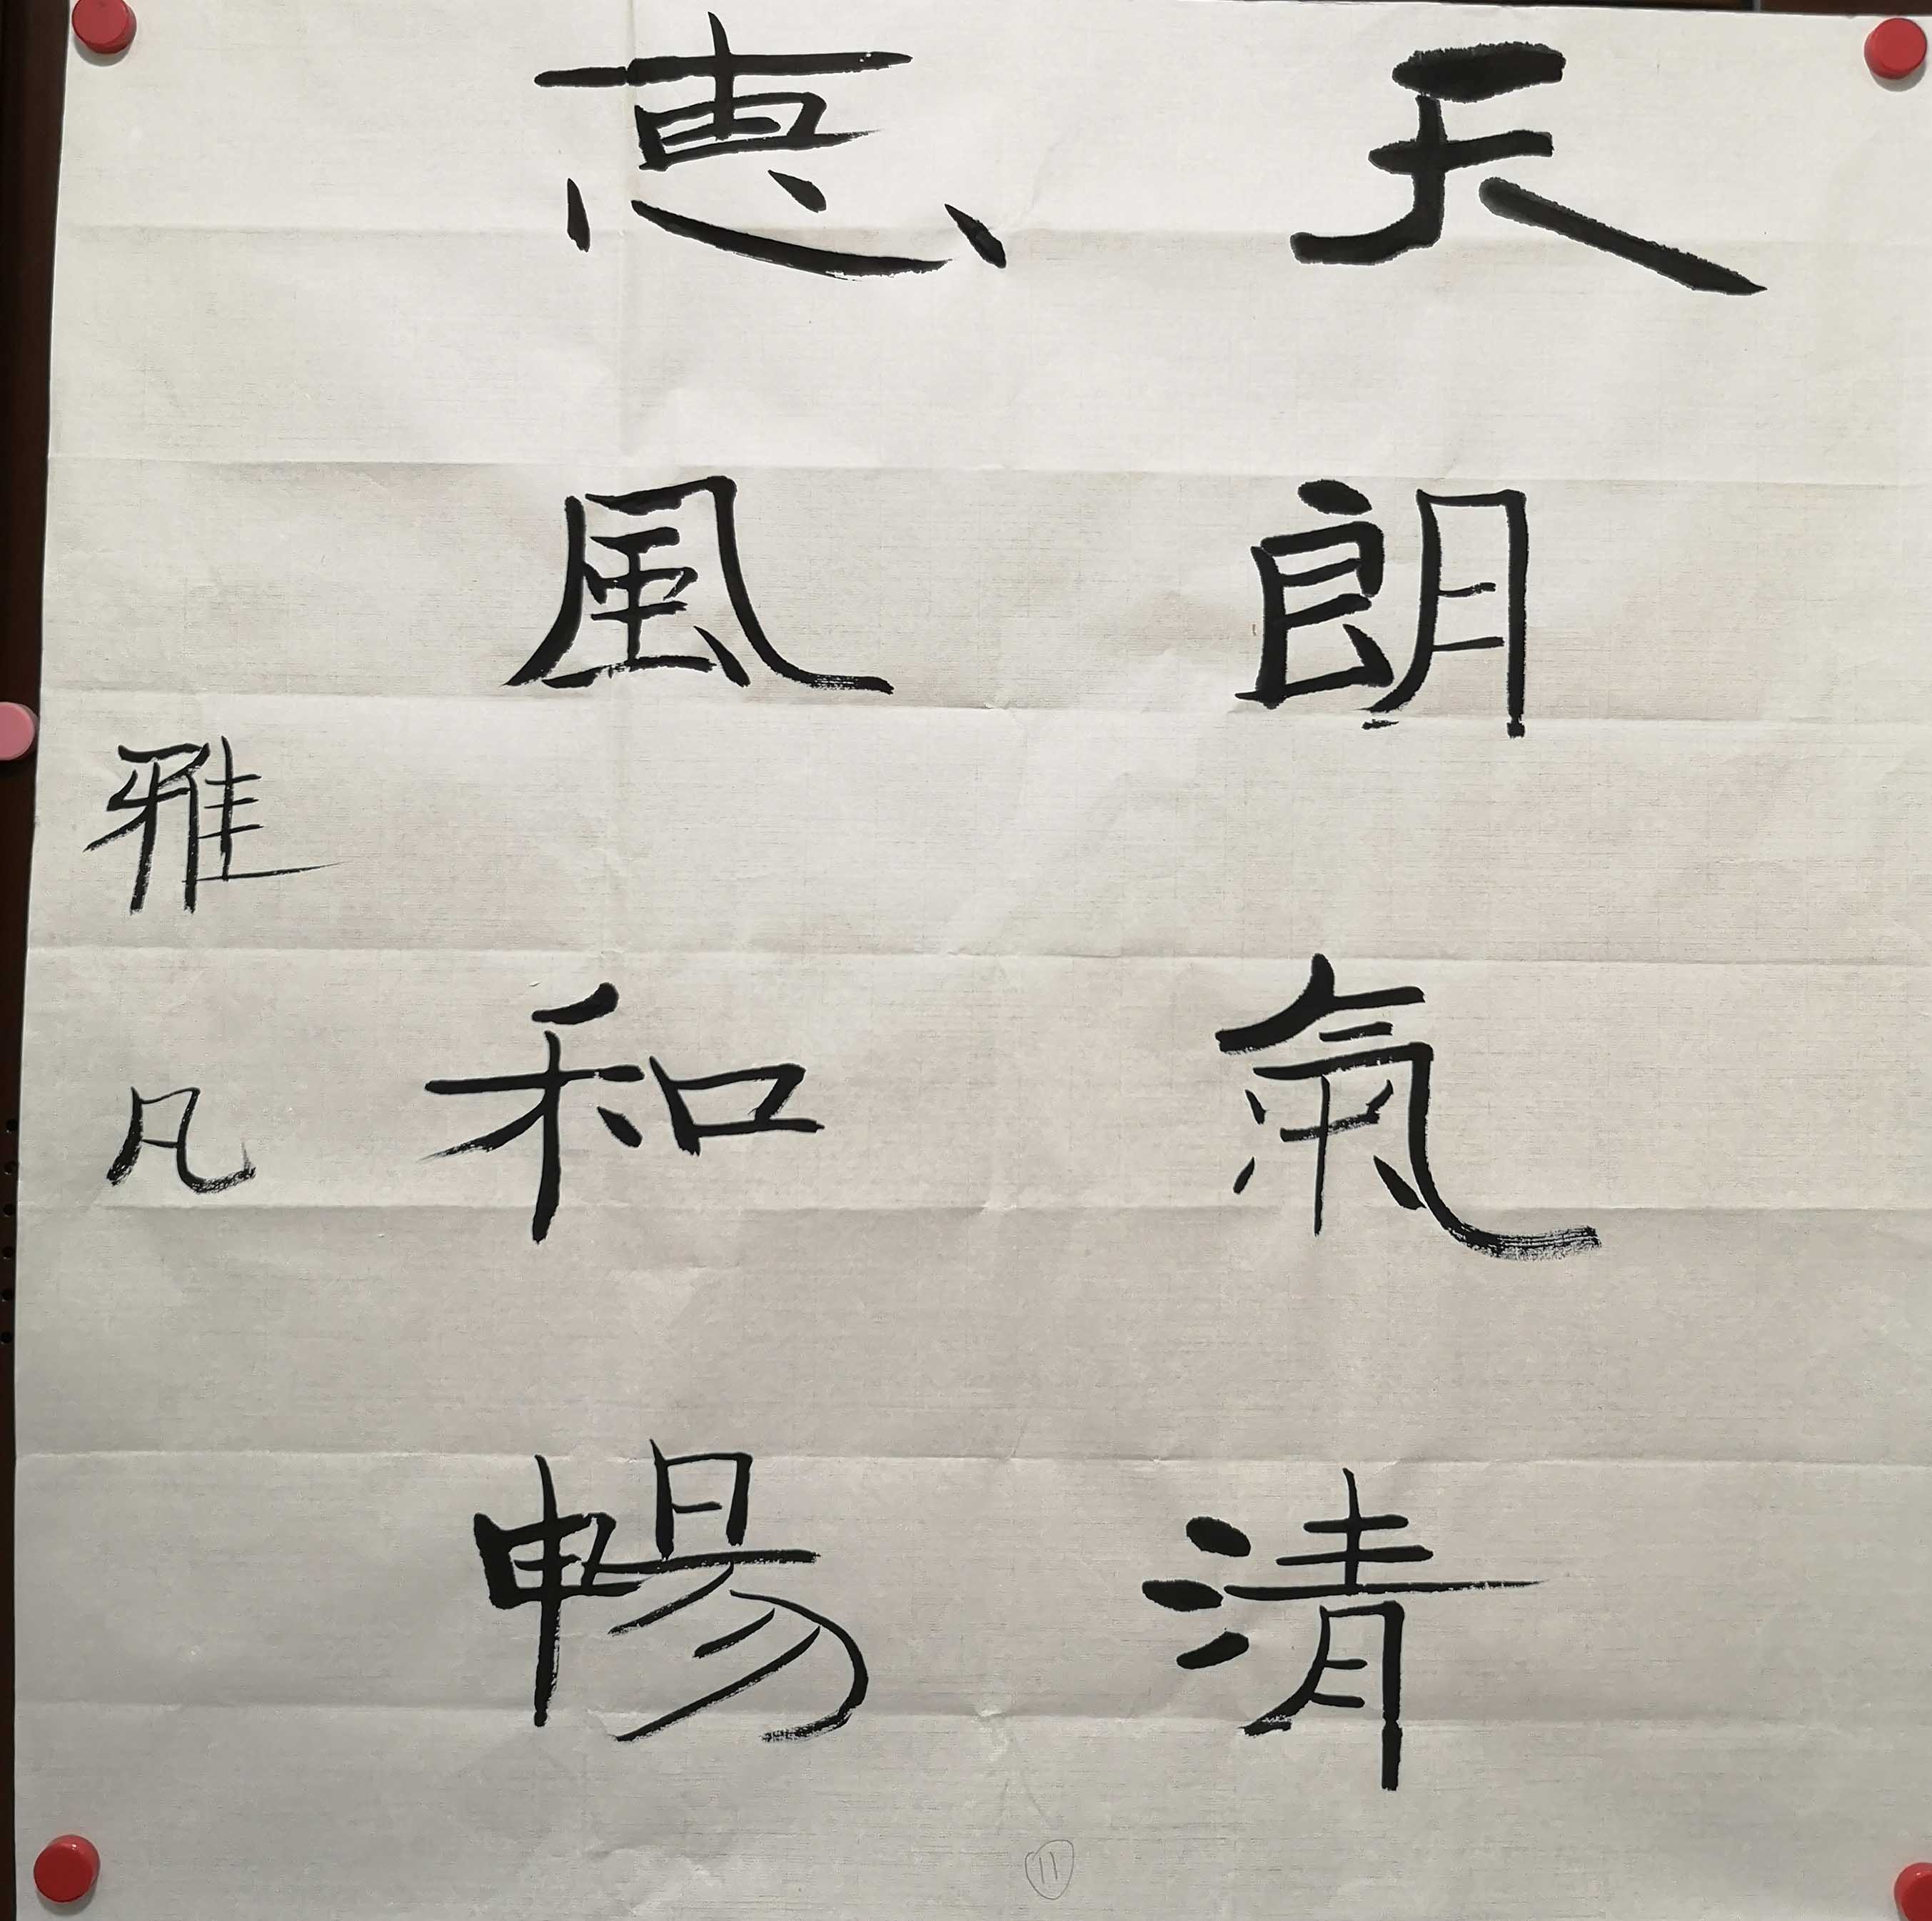 天朗氣清
恵風和暢
雅凡
11